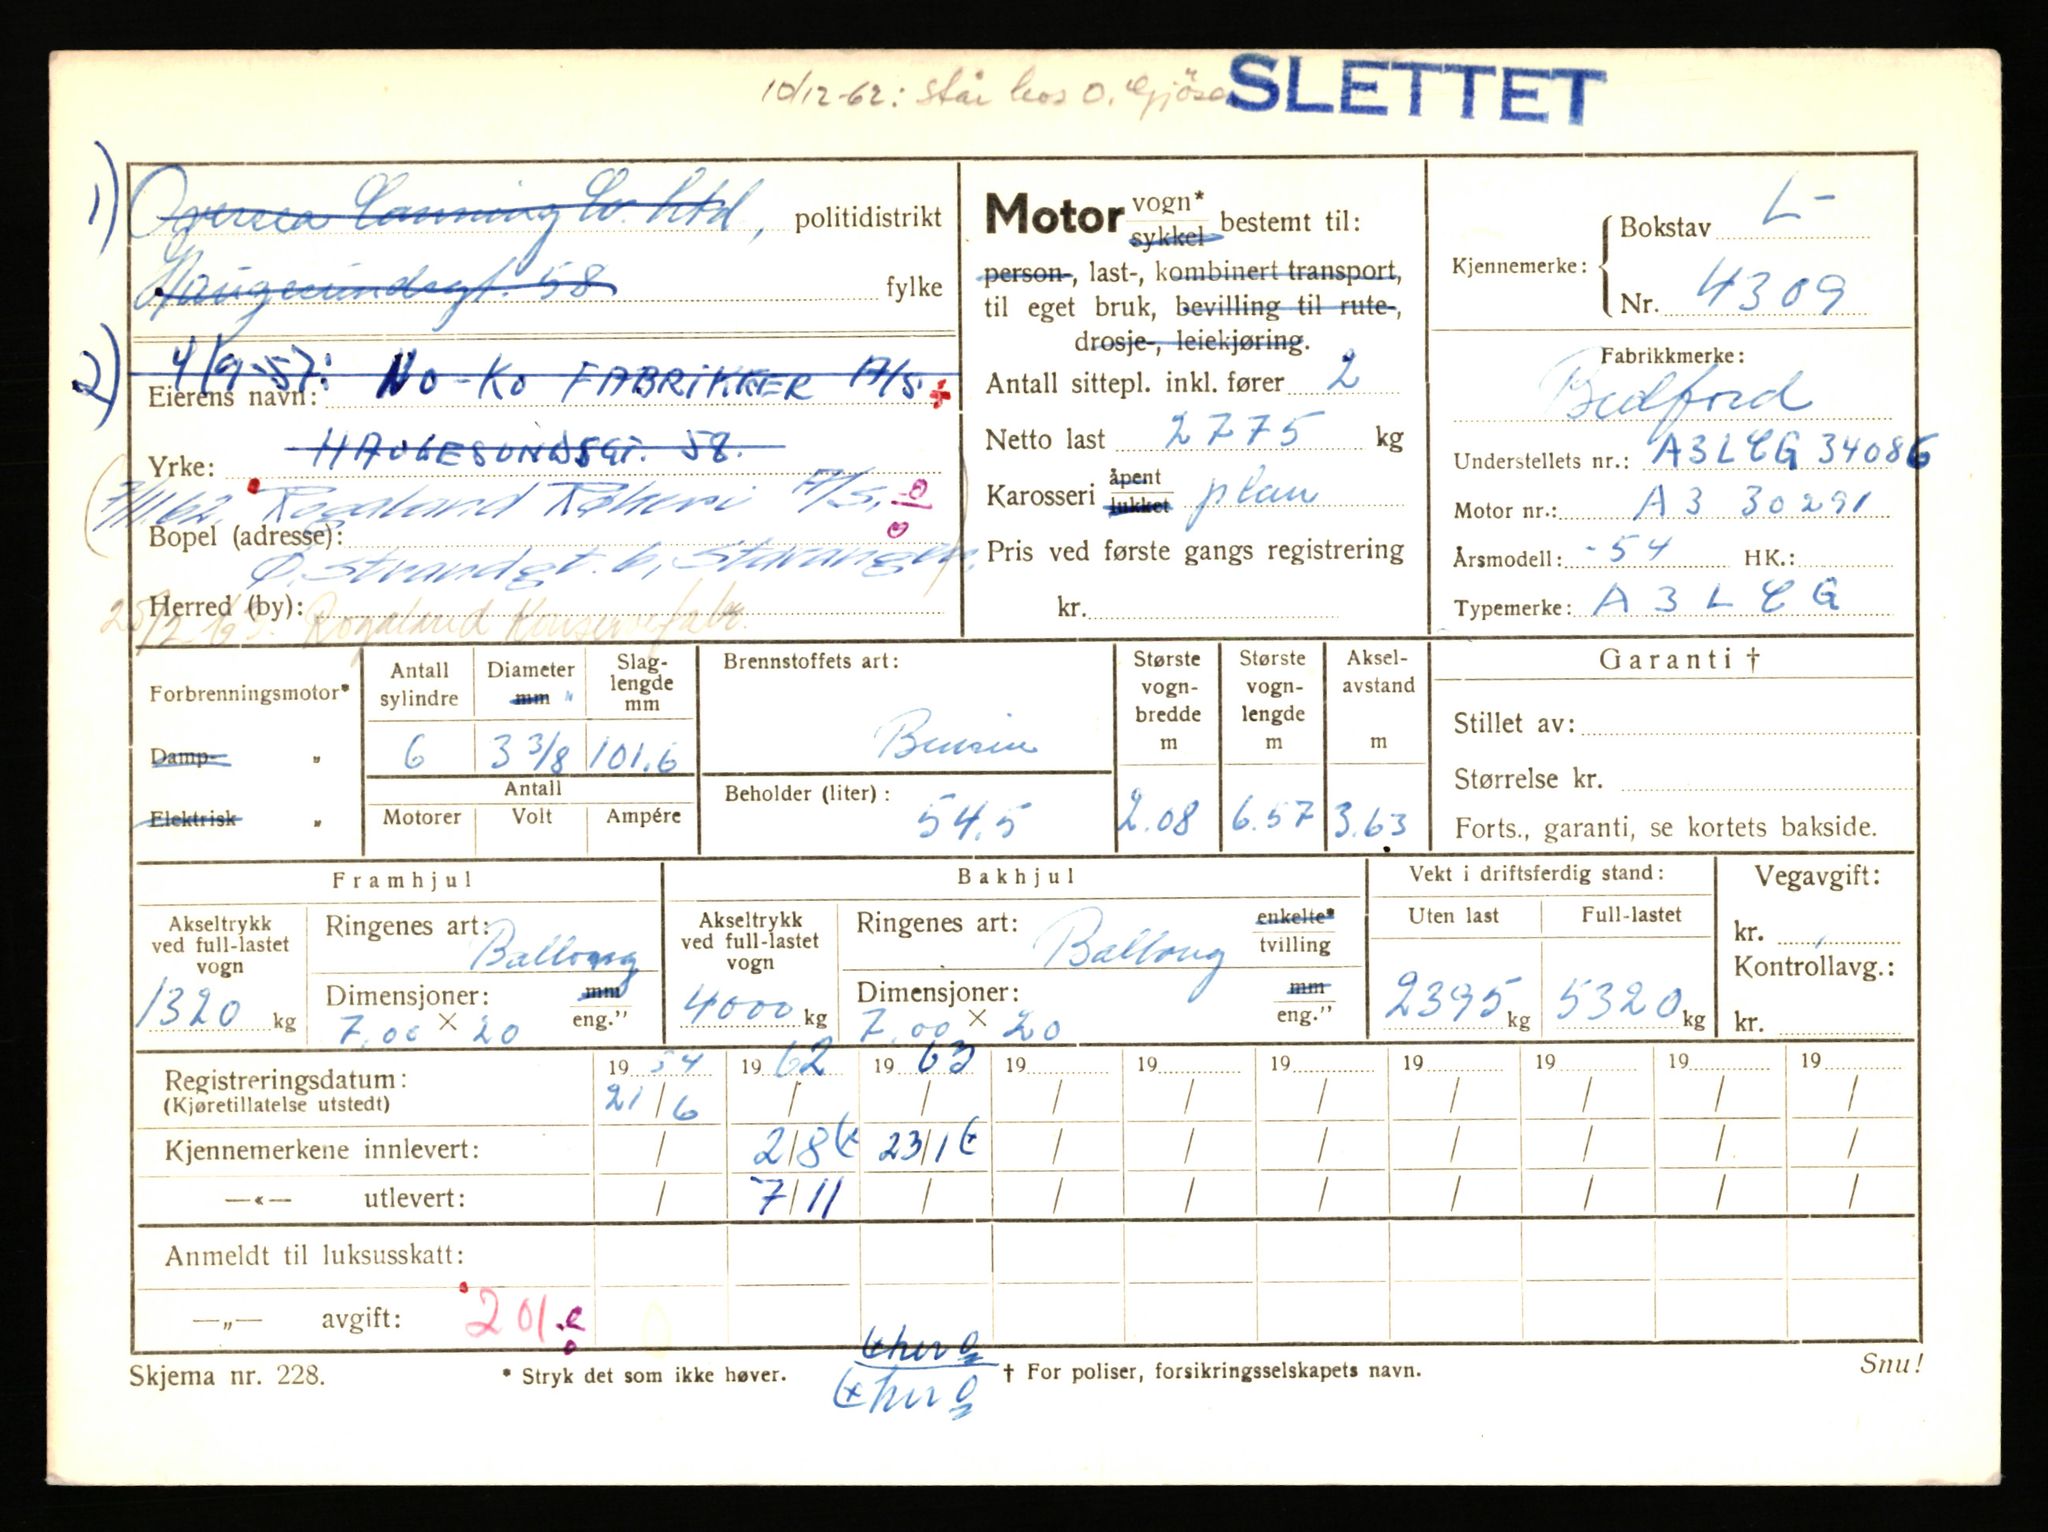 10/12-62: står hos O. Gjösæ
SLETTET
1) Oversea Canning Co. Ltd, politidistrikt
Haugesundsgt. 58 fylke
2) 4/9-57: NO-KO FABRIKKER A/S.
Eierens navn:
HAUGESUNDSGT. 58.
Yrke:
7/11.62. Rogaland Røkeri A/S.
Bopel (adresse):
Ø. Strandgt. 6, Stavanger
Herred (by):
Rogaland Konservefabr.
Motor vogn* sykkel bestemt til:
person-, last-, kombinert transport,
til eget bruk, bevilling til rute-,
drosje-, leiekjøring.
Antall sittepl. inkl. fører 2
Netto last 2775 kg
Karosseri åpent lukket plan
Pris ved første gangs registrering
kr.
Kjennemerke: Bokstav L-
Nr. 4309
Fabrikkmerke:
Bedford
Understellets nr.: A3LCG 34086
Motor nr.: A3 30291
Årsmodell: -54 HK.:
Typemerke: A3LCG
Forbrenningsmotor*
Damp- „
Elektrisk „
Antall sylindre 6
Diameter mm " 3 3/8
Slag-lengde mm 101.6
Antall
Motorer Volt Ampére
Brennstoffets art:
Bensin
Beholder (liter): 54.5
Største vogn-bredde m 2.08
Største vogn-lengde m 6.57
Aksel-avstand m 3.63
Garanti †
Stillet av:
Størrelse kr.
Forts., garanti, se kortets bakside.
Framhjul
Akseltrykk ved full-lastet vogn 1320 kg
Ringenes art: Ballong
Dimensjoner: mm eng."
7,00 × 20
Bakhjul
Akseltrykk ved full-lastet vogn 4000 kg
Ringenes art: Ballong enkelte* tvilling
Dimensjoner: mm eng."
7,00 × 20
Vekt i driftsferdig stand:
Uten last Full-lastet
2395 kg 5320 kg
Vegavgift:
kr.
Kontrollavg.:
kr.
19 54 19 62 19 63 19 19 19 19 19 19 19
Registreringsdatum: 21/6 / / / / / / / / /
(Kjøretillatelse utstedt)
Kjennemerkene innlevert: / 2/8 23/1 / / / / / / /
—«— utlevert: / 7/11 / / / / / / / /
Anmeldt til luksusskatt:
—„— avgift: 201
Skjema nr. 228.
* Stryk det som ikke høver.
† For poliser, forsikringsselskapets navn.
Snu!